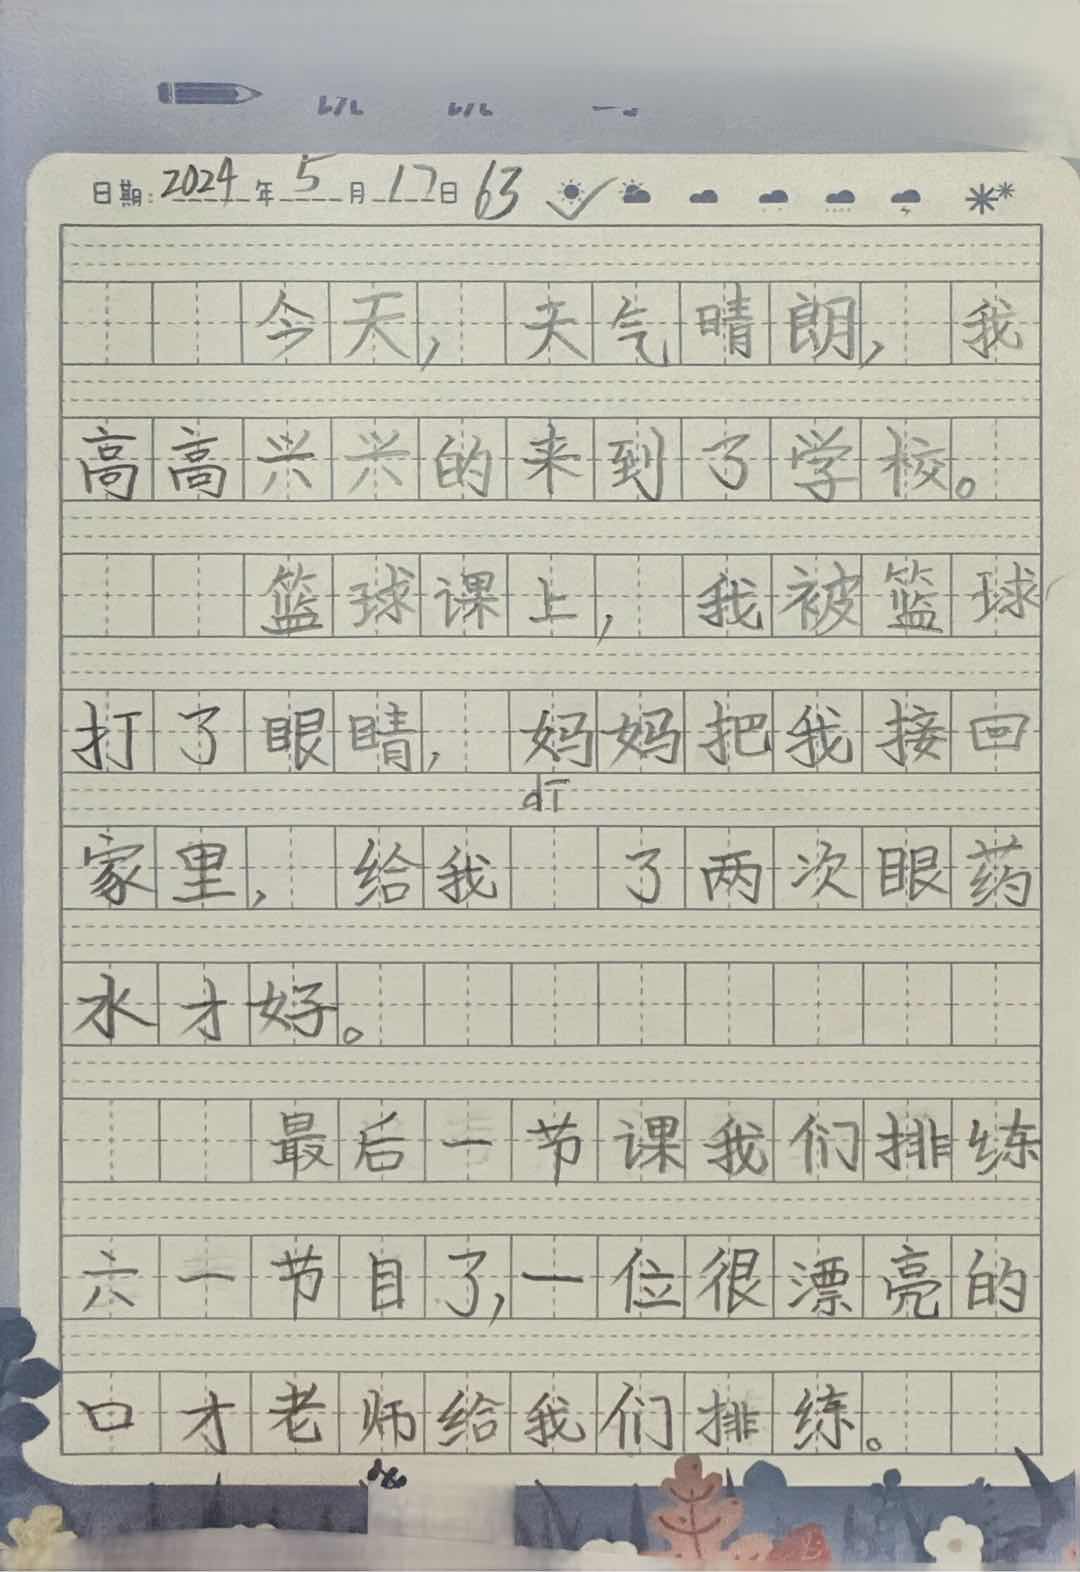 日期: 2024年5月17日 63
今天，天气晴朗，我
高高兴兴的来到了学校。
篮球课上，我被篮球
打了眼睛，妈妈把我接回
dī
家里，给我 了两次眼药
水才好。
最后一节课我们排练
六一节目了，一位很漂亮的
口才老师给我们排练。